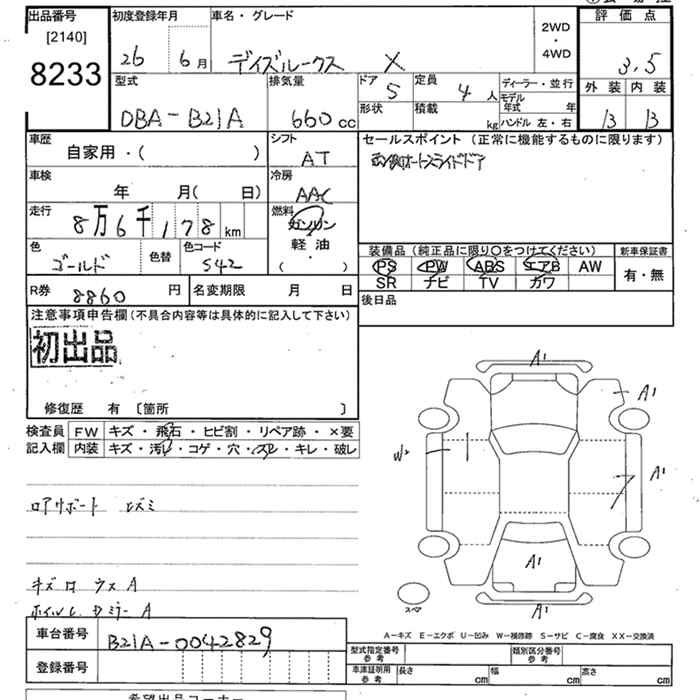 出品番号 初度登録年月 車名・グレード 2WD・4WD 評価点
[2140]
8233
26 6月 デイズルークス X 3.5
型式 排気量 ドア 定員 ディーラー・並行 外装 内装
DBA-B21A 660cc 5 4人 モデル年式 年
形状 積載 kg ハンドル 左・右 B B
車歴 シフト セールスポイント (正常に機能するものに限ります)
自家用・( ) AT
車検 冷房
年 月( 日) AAC
走行 燃料
8万6千178km ガソリン
軽・油
( )
色 色替 色コード
ゴールド S42
装備品 (純正品に限り○をつけてください) 新車保証書
PS PW ABS エアB AW 有・無
SR ナビ TV カワ
R券 8860円 名変期限 月 日
後日品
注意事項申告欄(不具合内容等は具体的に記入して下さい)
初出品
修復歴 有 〔箇所 〕
検査員 FW キズ・飛石・ヒビ割・リペア跡・×要
記入欄 内装 キズ・汚レ・コゲ・穴・スレ・キレ・破レ
A1
A1
W2
A1
A1
A1
スペア
ロアサポート ユズミ
A-キズ E-エクボ U-凹み W-補修跡 S-サビ C-腐食 XX-交換済
車台番号 B21A-0042829
登録番号
型式指定番号 参考 類別区分番号 参考
車庫証明用 参考 長さ cm 幅 cm 高さ cm
希望出品コーナー